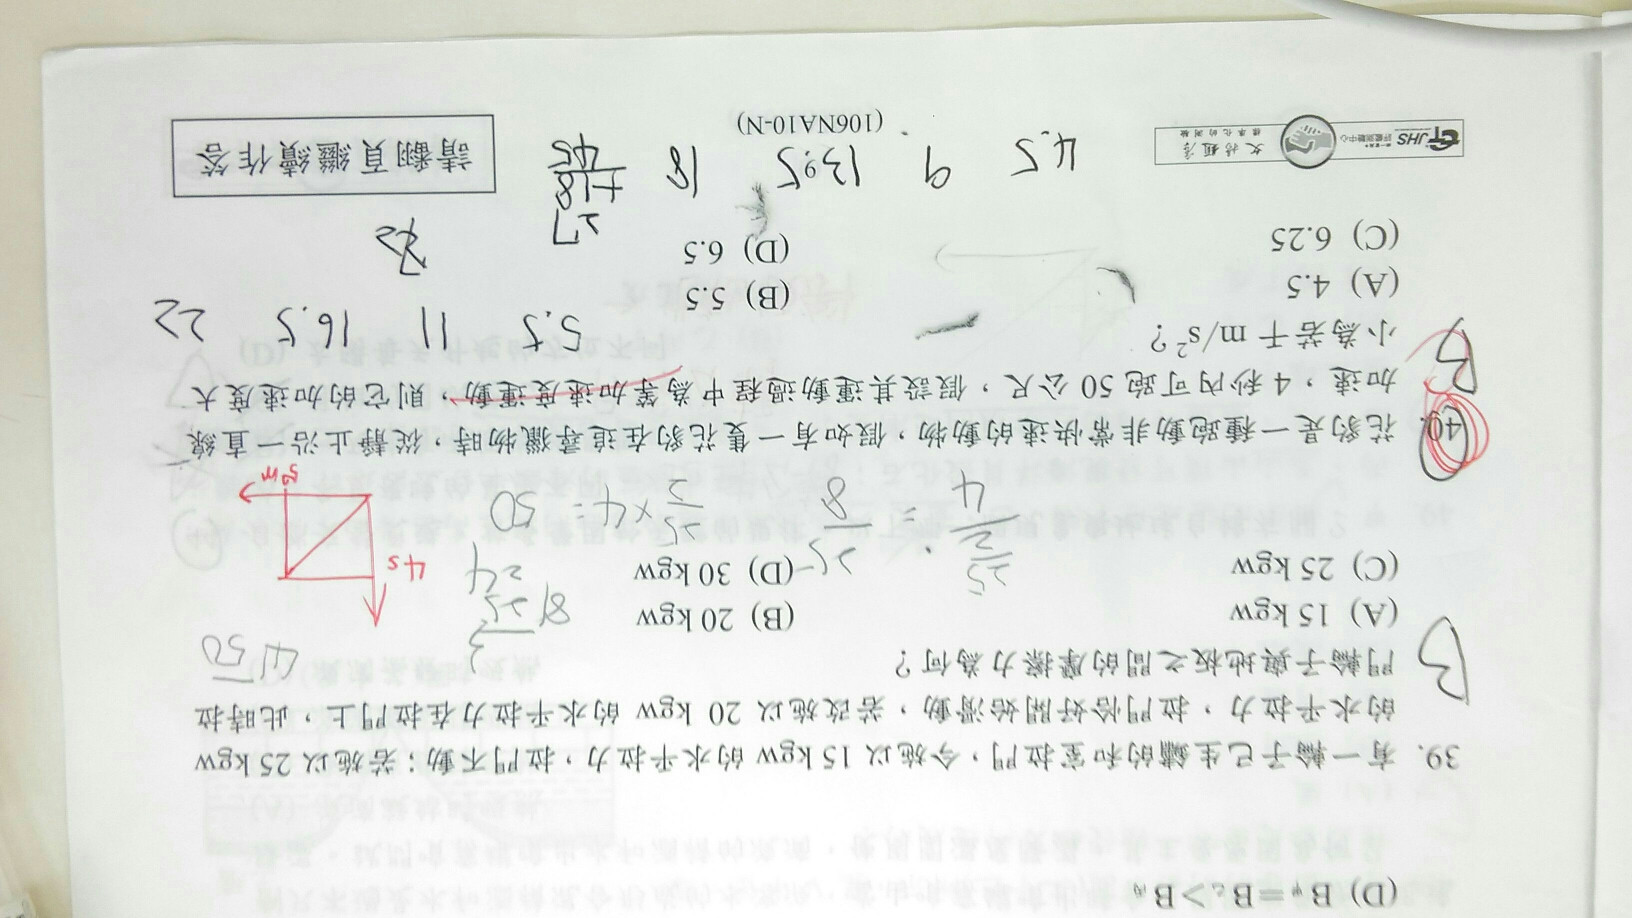 (D) B甲=B乙>B丙
39. 有一輪子已生鏽的和室拉門，今施以 15 kgw 的水平拉力，拉門不動；若施以 25 kgw
的水平拉力，拉門恰好開始滑動，若改施以 20 kgw 的水平拉力在拉門上，此時拉
門輪子與地板之間的摩擦力為何？
B
(A) 15 kgw (B) 20 kgw
(C) 25 kgw (D) 30 kgw
4√50
3
8√25
24
25/2 / 4 = 25/8
25/2 × 4 = 50
4s
50m
40. 花豹是一種跑動非常快速的動物，假如有一隻花豹在追尋獵物時，從靜止沿一直線
加速，4 秒內可跑 50 公尺，假設其運動過程中為等加速度運動，則它的加速度大
小為若干 m/s²？
B
(A) 4.5 (B) 5.5
(C) 6.25 (D) 6.5
5.5 11 16.5 22
27
+18
45
4.5 9 13.5 18
JHS
評鑑測驗中心
文揚鉅淳
標準化的測驗
(106NA10-N)
請翻頁繼續作答